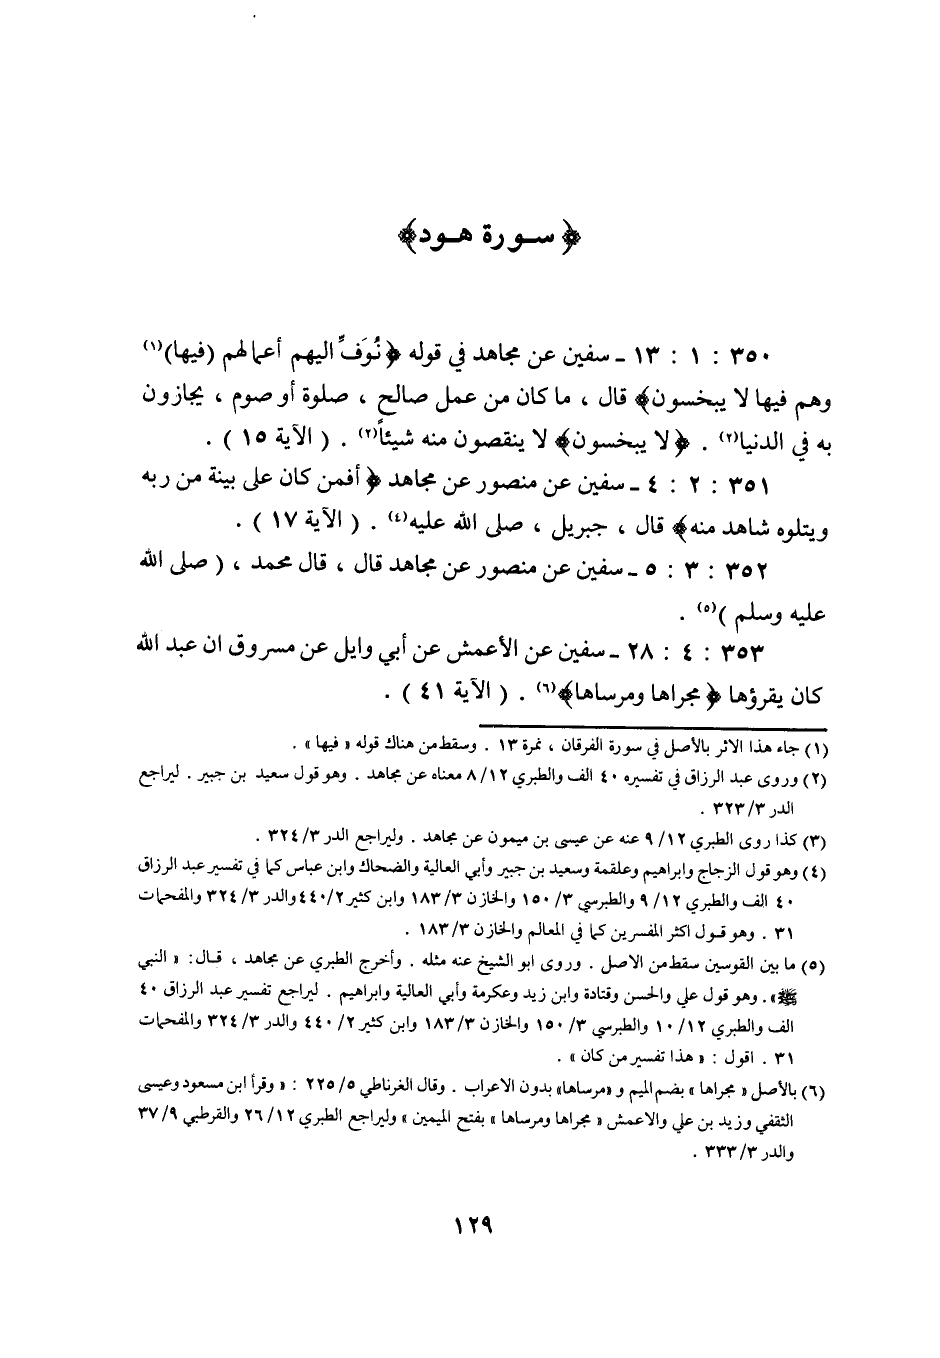 ﴿سورة هود﴾
٣٥٠ : ١ : ١٣ ـ سفين عن مجاهد في قوله ﴿نُوَفِّ اليهم أعمالهم (فيها)(١)
وهم فيها لا يبخسون﴾ قال ، ما كان من عمل صالح ، صلوة أو صوم ، يجازون
به في الدنيا(٢) . ﴿لا يبخسون﴾ لا ينقصون منه شيئاً(٢) . ( الآية ١٥ ) .
٣٥١ : ٢ : ٤ ـ سفين عن منصور عن مجاهد ﴿أفمن كان على بينة من ربه
ويتلوه شاهد منه﴾ قال ، جبريل ، صلى الله عليه(٤) . ( الآية ١٧ ) .
٣٥٢ : ٣ : ٥ ـ سفين عن منصور عن مجاهد قال ، قال محمد ، ( صلى الله
عليه وسلم )(٥) .
٣٥٣ : ٤ : ٢٨ ـ سفين عن الأعمش عن أبي وايل عن مسروق ان عبد الله
كان يقرؤها ﴿مجراها ومرساها﴾(٦) . ( الآية ٤١ ) .
(١) جاء هذا الاثر بالأصل في سورة الفرقان ، نمرة ١٣ . وسقط من هناك قوله « فيها » .
(٢) وروى عبد الرزاق في تفسيره ٤٠ الف والطبري ١٢/ ٨ معناه عن مجاهد . وهو قول سعيد بن جبير . ليراجع
الدر ٣/ ٣٢٣ .
(٣) كذا روى الطبري ١٢/ ٩ عنه عن عيسى بن ميمون عن مجاهد . وليراجع الدر ٣/ ٣٢٤ .
(٤) وهو قول الزجاج وابراهيم وعلقمة وسعيد بن جبير وأبي العالية والضحاك وابن عباس كما في تفسير عبد الرزاق
٤٠ الف والطبري ١٢/ ٩ والطبرسي ٣/ ١٥٠ والخازن ٣/ ١٨٣ وابن كثير ٢/ ٤٤٠ والدر ٣/ ٣٢٤ والمفحمات
٣١ . وهو قول اكثر المفسرين كما في المعالم والخازن ٣/ ١٨٣ .
(٥) ما بين القوسين سقط من الاصل . وروى ابو الشيخ عنه مثله . وأخرج الطبري عن مجاهد ، قال: « النبي
ﷺ». وهو قول علي والحسن وقتادة وابن زيد وعكرمة وأبي العالية وابراهيم . ليراجع تفسير عبد الرزاق ٤٠
الف والطبري ١٢/ ١٠ والطبرسي ٣/ ١٥٠ والخازن ٣/ ١٨٣ وابن كثير ٢/ ٤٤٠ والدر ٣/ ٣٢٤ والمفحمات
٣١ . اقول : « هذا تفسير من كان » .
(٦) بالأصل « مجراها » بضم الميم و «مرساها» بدون الاعراب . وقال الغرناطي ٥/ ٢٢٥ : « وقرأ ابن مسعود وعيسى
الثقفي وزيد بن علي والاعمش « مجراها ومرساها » بفتح الميمين » وليراجع الطبري ١٢/ ٢٦ والقرطبي ٩/ ٣٧
والدر ٣/ ٣٣٣ .
١٢٩